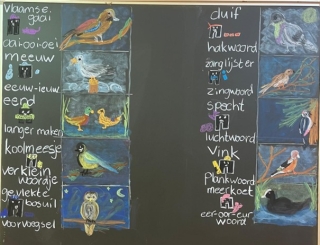 vlaamse
gaai
aai-ooi-oei
meeuw
eeuw-ieuw
eend
langermaker
koolmeesje
verklein
woordje
gevlekte
bosuil
voorvoegsel
duif
hakwoord
zanglijster
zingwoord
specht
luchtwoord
vink
plankwoord
meerkoet
eer-oor-eur
woord